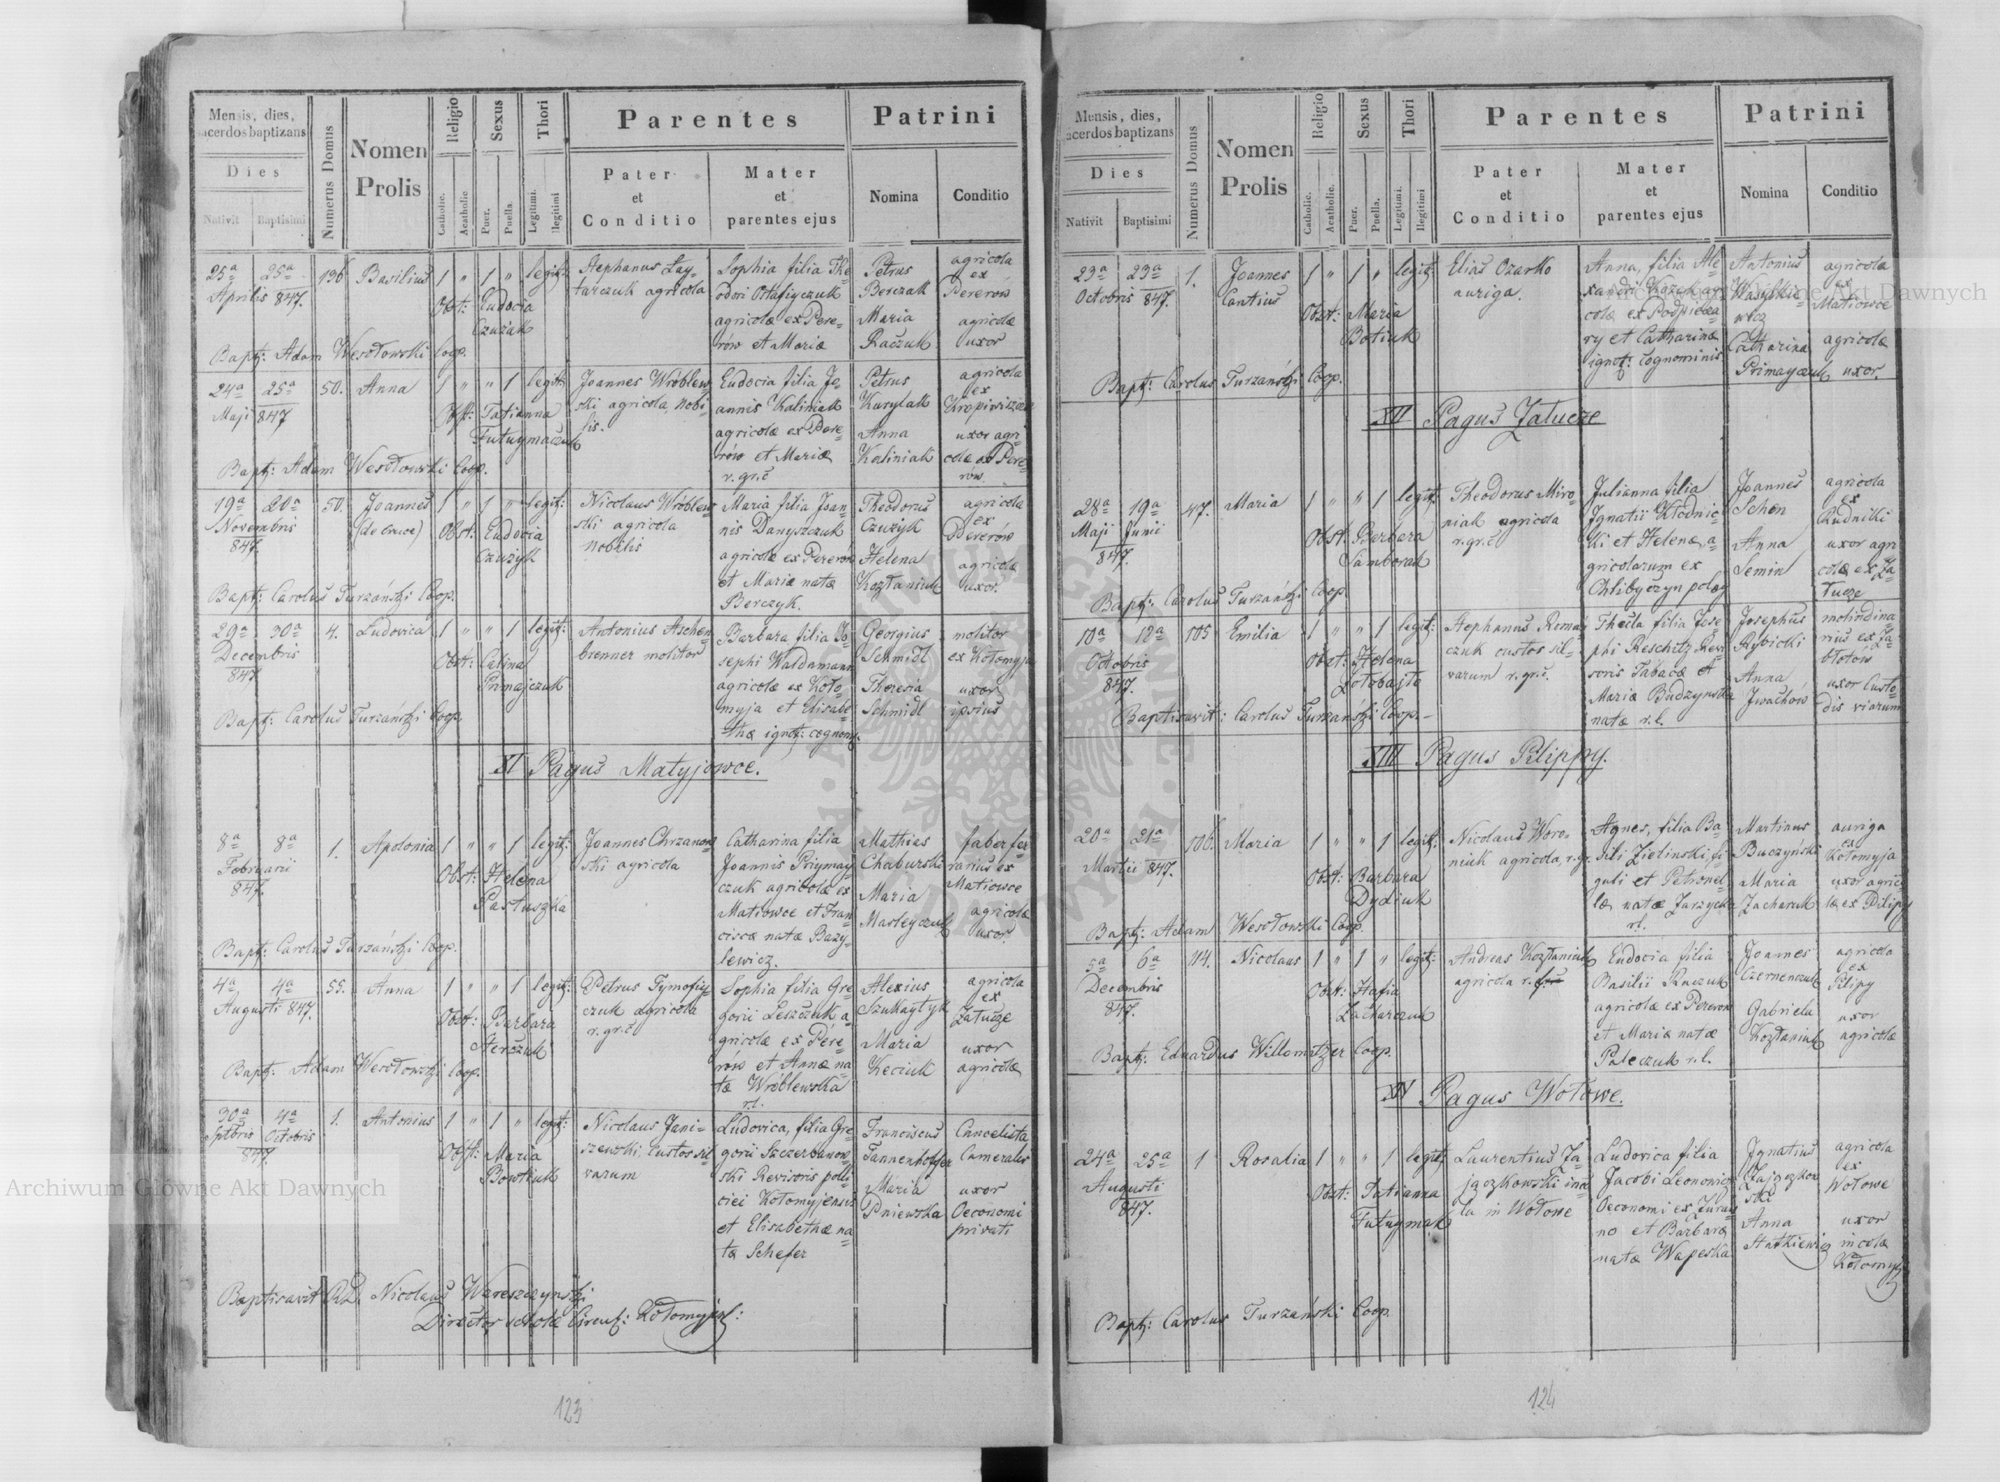 Mensis, dies,
acerdos baptizans
Dies
Nativit
Baptisimi
Numerus Domus
Nomen
Prolis
Religio
Catholic.
Acatholic.
Sexus
Puer.
Puella.
Thori
Legitimi.
Ilegitimi
Parentes
Pater
et
Conditio
Mater
et
parentes ejus
Patrini
Nomina
Conditio
25a 25a 196 Basilius 1 " 1 " legit:
Aprilis 847.
Obst: Eudocia
Czuzak
Stephanus Lay-
tarczuk agricola
Sophia filia The
odori Ostafiyczuk
agricolæ ex Pere-
row et Maria
Petrus
Berczak
Maria
Raczuk
agricola
ex
Pererow
agricolæ
uxor
Bapt: Adam Wesołowski Coop.
24a 25a 50. Anna 1 " " 1 legit:
Maji 847
Obst: Tatianna
Futuymaczuk
Joannes Wróblew
ski agricola, nobi-
lis.
Eudocia filia Jo-
annis Kaliniak
agricolæ ex Pere-
rów et Mariæ
r.gr.c
Petrus
Kurylak
Anna
Kaliniak
agricola
ex
uxor agri-
colæ ex Pere-
rów
Bapt: Adam Wesołowski Coop.
19a 20a 50. Joannes 1 " 1 " legit:
Novembris
847.
(de Cruce)
Obst: Eudocia
Czuzyk
Nicolaus Wróblew
ski agricola
Nobilis
Maria filia Joan-
nis Danyszczuk
agricolæ ex Pererów
et Mariæ natæ
Berczyk.
Theodorus
Czuzyk
Helena
Kozłaniuk
agricola
ex
Pererów
agricolæ
uxor.
Bapt: Carolus Turzański Coop.
29a 30a 4. Ludovica 1 " " 1 legit:
Decembris
847
Obst: Celina
Primajczuk
Antonius Aschen-
brenner molitor
Barbara filia Jo-
sephi Waldamann
agricolæ ex Koło-
myja et Elisabe-
thæ ignot: cognom:
Georgius
Schmidl
Theresia
Schmidl
molitor
ex Kołomyja
uxor
ipsius
Bapt: Carolus Turzański Coop.
XI Pagus Matyjowce.
8a 8a 1. Apolonia 1 " " 1 legit:
Februarii
847.
Obst: Helena
Pastuszka
Joannes Chrzanow
ski agricola
Catharina filia
Joannis Priymay
czuk agricolæ ex
Matiowce et Fran
ciscæ natæ Bazy-
lewicz.
Mathias
Chaburski
Maria
Marteyczuk
faber fer
rarius ex
Matiowce
agricolæ
uxor.
Bapt: Carolus Turzański Coop.
4a 4a 55. Anna 1 " " 1 legit:
Augusti 847.
Obst: Barbara
Petrus Tymofiy-
czuk agricola
r.gr.c
Sophia filia Gre
gorii Leszczuk a-
gricolæ ex Pere-
rów et Annæ na-
tæ Wróblewska
r.l.
Alexius
Maria
Keciuk
agricola
ex
Zatucze
uxor
agricolæ
Bapt: Adam Wesołowski Coop.
30a 4a 1. Antonius 1 " 1 " legit:
Sptbris Octobris
847.
Obst: Maria
Nicolaus Jani-
szewski custos sil-
varum
Ludovica, filia Gre-
gorii Szczerbanow-
ski Revisoris poli-
ciei Kołomyjensis
et Elisabethæ na-
tæ Schefer
Franciscus
Tannenhoffer
Maria
Pniewska
Cancelista
Cameralis
uxor
Oeconomi
privati
Baptisavit R.D. Nicolaus Wereszczynski
Director scholæ Circul: Kołomyjens:
123
Mensis, dies,
acerdos baptizans
Dies
Nativit
Baptisimi
Numerus Domus
Nomen
Prolis
Religio
Catholic.
Acatholic.
Sexus
Puer.
Puella.
Thori
Legitimi.
Ilegitimi
Parentes
Pater
et
Conditio
Mater
et
parentes ejus
Patrini
Nomina
Conditio
23a 23a 1. Joannes 1 " 1 " legit:
Octobris 847.
Cantius
Obst: Maria
Botiuk
Elias Ozarko
auriga.
Anna, filia Ale
xandri Kozuk agri
colæ ex Podpiecza-
ry et Catharinæ
ignot: cognominis
Antonius
Wasylkie-
wicz
Catharina
Primayczuk
agricola
ex
Matiowce
agricolæ
uxor.
Bapt: Carolus Turzański Coop.
XII Pagus Zatucze
28a 19a 47. Maria 1 " " 1 legit:
Maji Junii
847.
Obst: Barbara
Samborak
Theodorus Miro-
niak agricola
r.gr.c
Julianna filia
Ignatii Kłodnic-
ki et Helenæ, a-
gricolarum ex
Chlibyczyn
Joannes
Schon
Anna
Semin
agricola
ex
Rudniki
uxor agri
colæ ex Za-
tucze
Bapt: Carolus Turzański Coop.
10a 12a 105 Emilia 1 " " 1 legit:
Octobris
847.
Obst: Helena
Stephanus Roma
czuk custos sil-
varum r.gr.c.
Thecla filia Jose-
phi Reschitz Revi
soris Tabacæ et
Mariæ Budzynska
natæ r.l.
Josephus
Rybicki
Anna
Iwachów
molindina-
rius ex Za-
błotów
uxor Custo-
dis viarum
Baptisavit: Carolus Turzanski Coop.
XIII Pagus Pilippy.
20a 21a 106. Maria 1 " " 1 legit:
Martii 847.
Obst: Barbara
Dydiuk
Nicolaus Woro-
niuk agricola, r.gr.
Agnes, filia Ba-
silii Zielinski fi-
guli et Petronel-
læ natæ Jarzycka
r.l.
Martinus
Buczyński
Maria
Zacharuk
auriga
ex
Kołomyja
uxor agrico
læ ex Pilipy
Bapt: Adam Wesołowski Coop.
5a 6a 114. Nicolaus 1 " 1 " legit:
Decembris
847.
Obst: Hafia
Lacharczuk
Andreas Kozłaniuk
agricola r.
Eudocia filia
Basilii Raczuk
agricolæ ex Pererow
et Mariæ natæ
Paleczuk r.l.
Joannes
Czernenczuk
Gabriela
Kozłaniuk
agricola
ex
Pilipy
uxor
agricolæ
Bapt: Eduardus Willomitzer Coop.
XIV Pagus Wołowe.
24a 25a 1 Rosalia 1 " " 1 legit:
Augusti
847.
Obst: Tatianna
Futuymak
Laurentius Za-
jączkowski inco
la in Wołowe
Ludovica filia
Jacobi Leonowicz
Oeconomi ex Zura-
no et Barbaræ
natæ Wapeska
Ignatius
Zajączkow
ski
Anna
Statkiewicz
agricola
ex
Wołowe
uxor
incolæ
Kołomyj
Bapt: Carolus Turzański Coop.
124
Archiwum Główne Akt Dawnych
Archiwum Główne Akt Dawnych